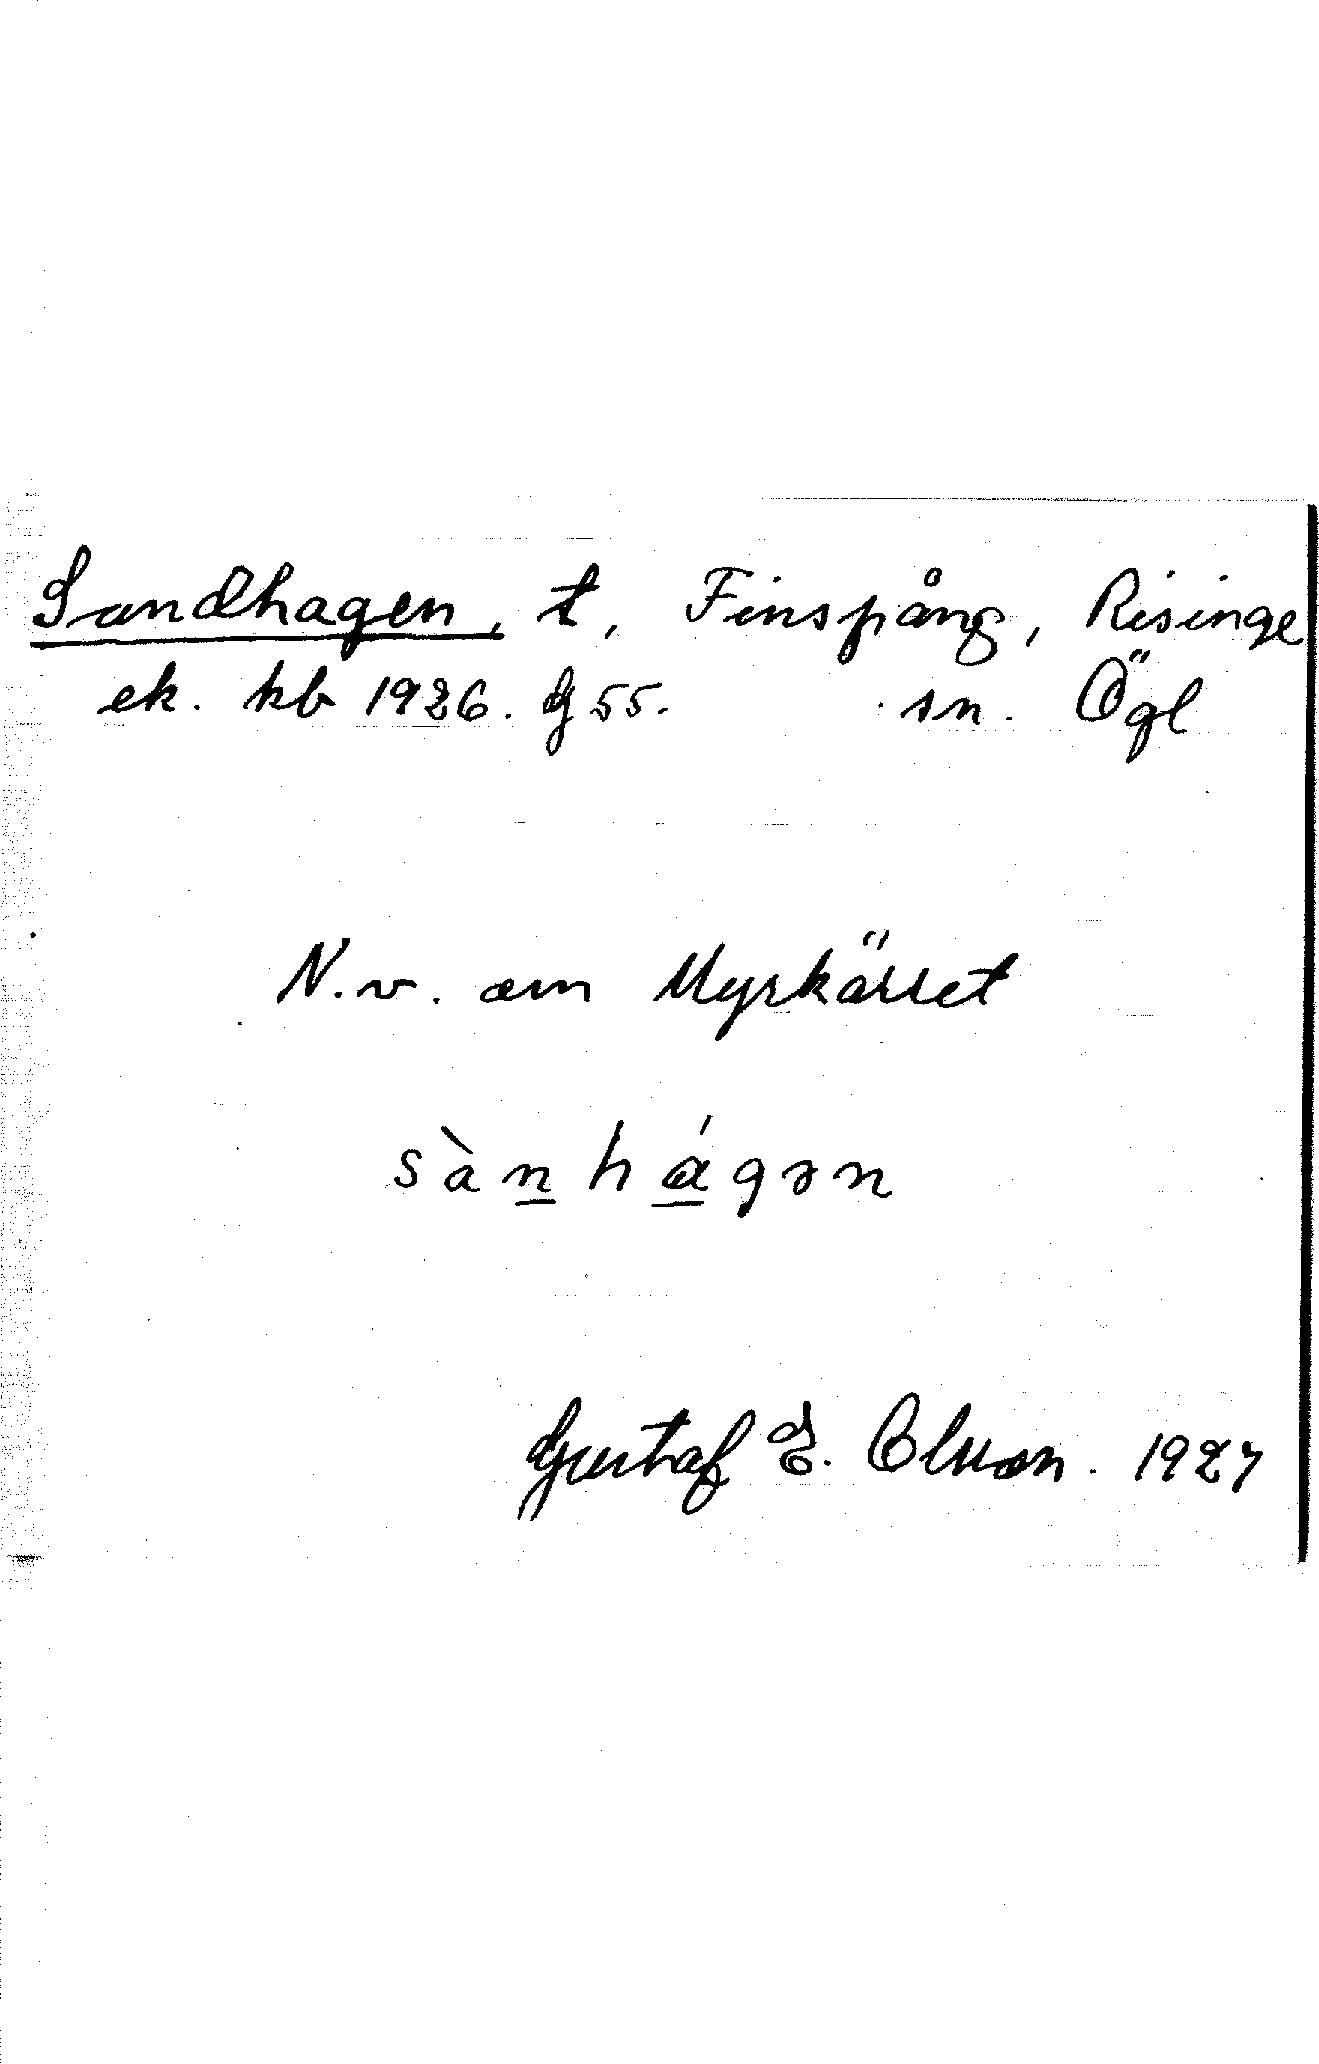 Sandhagen, t, Finspång, Risinge
ek. kb 1926. G 55. sn. Ögl
N.v. om Myrkärret
sànhágən
Gustaf E. Olsson. 1927